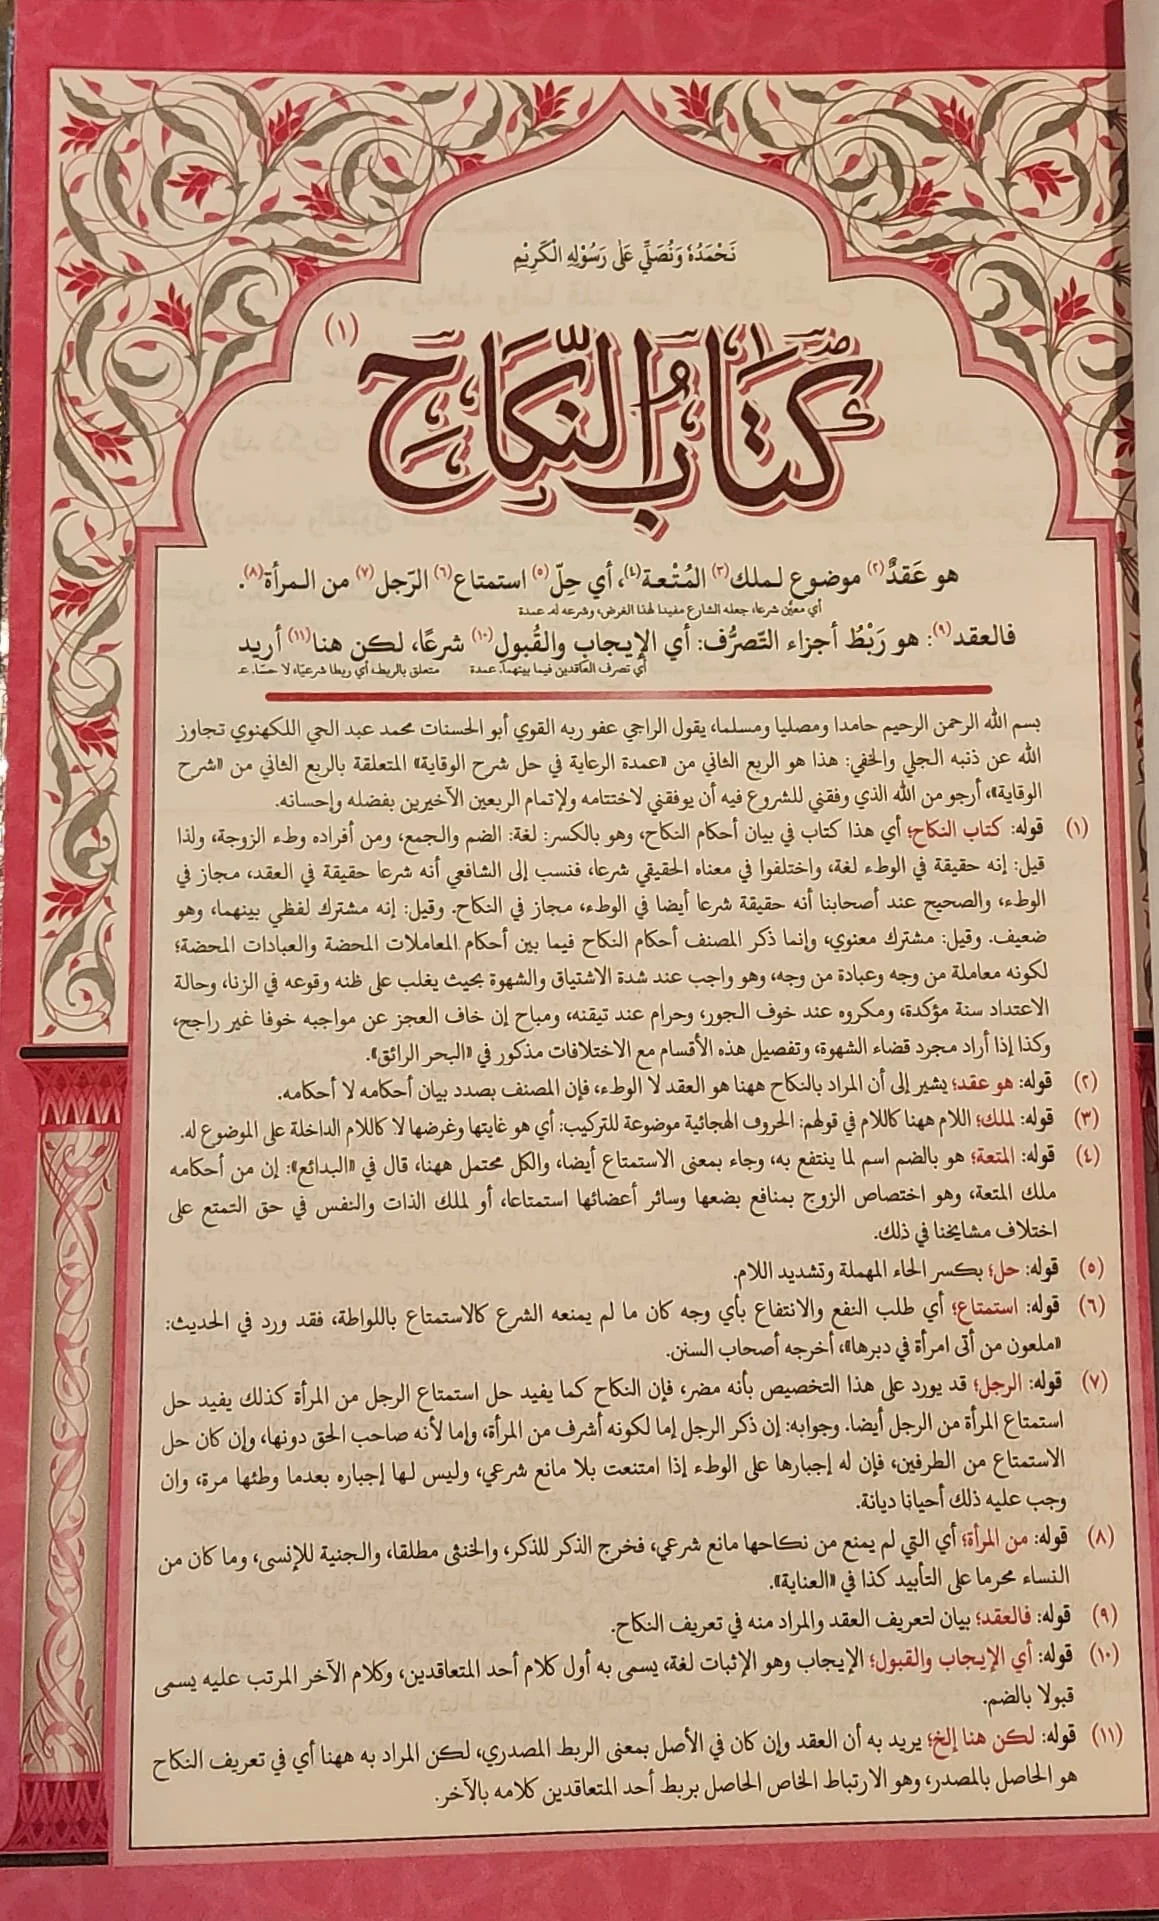 نَحْمَدُهٗ وَنُصَلِّيْ عَلٰى رَسُوْلِهِ الْكَرِيْمِ
كِتَابُ النِّكَاحِ (١)
هو عَقدٌ(٢) موضوع لـملك(٣) المُتْعة(٤)، أي حِلّ(٥) استمتاع(٦) الرّجل(٧) من الـمرأة(٨).
أي معيَّن شرعا، جعله الشارع مفيدا لهذا الغرض، وشرعه له. عمدة
فالعقد(٩): هو رَبْطُ أجزاء التّصرُّف: أي الإيجاب والقُبول(١٠) شرعًا، لكن هنا(١١) أريد
أي تصرف العاقدين فيما بينهما. عمدة متعلق بالربط، أي ربطا شرعيًا، لا حسًا. عـ
بسم الله الرحمن الرحيم حامدا ومصليا ومسلما، يقول الراجي عفو ربه القوي أبو الحسنات محمد عبد الحي اللكهنوي تجاوز
الله عن ذنبه الجلي والخفي: هذا هو الربع الثاني من «عمدة الرعاية في حل شرح الوقاية» المتعلقة بالربع الثاني من «شرح
الوقاية»، أرجو من الله الذي وفقني للشروع فيه أن يوفقني لاختتامه ولإتمام الربعين الآخيرين بفضله وإحسانه.
(١) قوله: كتاب النكاح؛ أي هذا كتاب في بيان أحكام النكاح، وهو بالكسر: لغة: الضم والجمع، ومن أفراده وطء الزوجة، ولذا
قيل: إنه حقيقة في الوطء لغة، واختلفوا في معناه الحقيقي شرعا، فنسب إلى الشافعي أنه شرعا حقيقة في العقد، مجاز في
الوطء، والصحيح عند أصحابنا أنه حقيقة شرعا أيضا في الوطء، مجاز في النكاح. وقيل: إنه مشترك لفظي بينهما، وهو
ضعيف. وقيل: مشترك معنوي، وإنما ذكر المصنف أحكام النكاح فيما بين أحكام المعاملات المحضة والعبادات المحضة؛
لكونه معاملة من وجه وعبادة من وجه، وهو واجب عند شدة الاشتياق والشهوة بحيث يغلب على ظنه وقوعه في الزنا، وحالة
الاعتداد سنة مؤكدة، ومكروه عند خوف الجور، وحرام عند تيقنه، ومباح إن خاف العجز عن مواجبه خوفا غير راجح،
وكذا إذا أراد مجرد قضاء الشهوة، وتفصيل هذه الأقسام مع الاختلافات مذكور في «البحر الرائق».
(٢) قوله: هو عقد؛ يشير إلى أن المراد بالنكاح ههنا هو العقد لا الوطء، فإن المصنف بصدد بيان أحكامه لا أحكامه.
(٣) قوله: لملك؛ اللام ههنا كاللام في قولهم: الحروف الهجائية موضوعة للتركيب: أي هو غايتها وغرضها لا كاللام الداخلة على الموضوع له.
(٤) قوله: المتعة؛ هو بالضم اسم لما ينتفع به، وجاء بمعنى الاستمتاع أيضا، والكل محتمل ههنا، قال في «البدائع»: إن من أحكامه
ملك المتعة، وهو اختصاص الزوج بمنافع بضعها وسائر أعضائها استمتاعا، أو لملك الذات والنفس في حق التمتع على
اختلاف مشايخنا في ذلك.
(٥) قوله: حل؛ بكسر الحاء المهملة وتشديد اللام.
(٦) قوله: استمتاع؛ أي طلب النفع والانتفاع بأي وجه كان ما لم يمنعه الشرع كالاستمتاع باللواطة، فقد ورد في الحديث:
«ملعون من أتى امرأة في دبرها»، أخرجه أصحاب السنن.
(٧) قوله: الرجل؛ قد يورد على هذا التخصيص بأنه مضر، فإن النكاح كما يفيد حل استمتاع الرجل من المرأة كذلك يفيد حل
استمتاع المرأة من الرجل أيضا. وجوابه: إن ذكر الرجل إما لكونه أشرف من المرأة، وإما لأنه صاحب الحق دونها، وإن كان حل
الاستمتاع من الطرفين، فإن له إجبارها على الوطء إذا امتنعت بلا مانع شرعي، وليس لها إجباره بعدما وطئها مرة، وان
وجب عليه ذلك أحيانا ديانة.
(٨) قوله: من المرأة؛ أي التي لم يمنع من نكاحها مانع شرعي، فخرج الذكر للذكر، والخنثى مطلقا، والجنية للإنسى، وما كان من
النساء محرما على التأبيد كذا في «العناية».
(٩) قوله: فالعقد؛ بيان لتعريف العقد والمراد منه في تعريف النكاح.
(١٠) قوله: أي الإيجاب والقبول؛ الإيجاب وهو الإثبات لغة، يسمى به أول كلام أحد المتعاقدين، وكلام الآخر المرتب عليه يسمى
قبولا بالضم.
(١١) قوله: لكن هنا إلخ؛ يريد به أن العقد وإن كان في الأصل بمعنى الربط المصدري، لكن المراد به ههنا أي في تعريف النكاح
هو الحاصل بالمصدر، وهو الارتباط الخاص الحاصل بربط أحد المتعاقدين كلامه بالآخر.